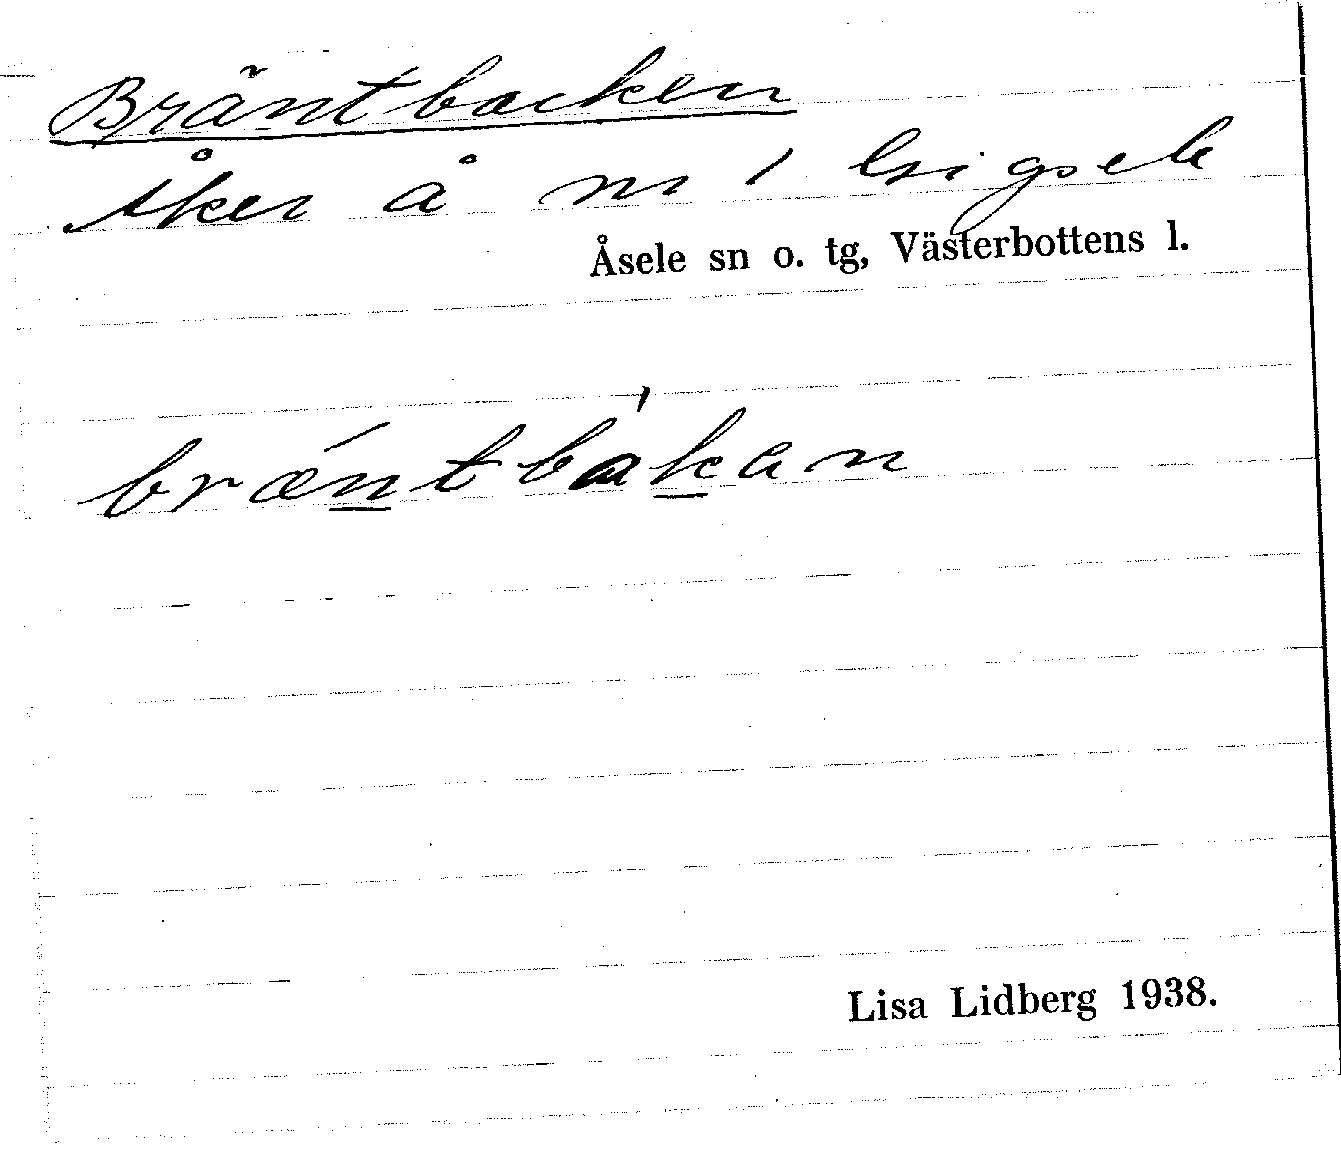 Bräntbacken
Åker å nr 1 Gigsele
Åsele sn o. tg, Västerbottens l.
bræ´ntbàkan
Lisa Lidberg 1938.